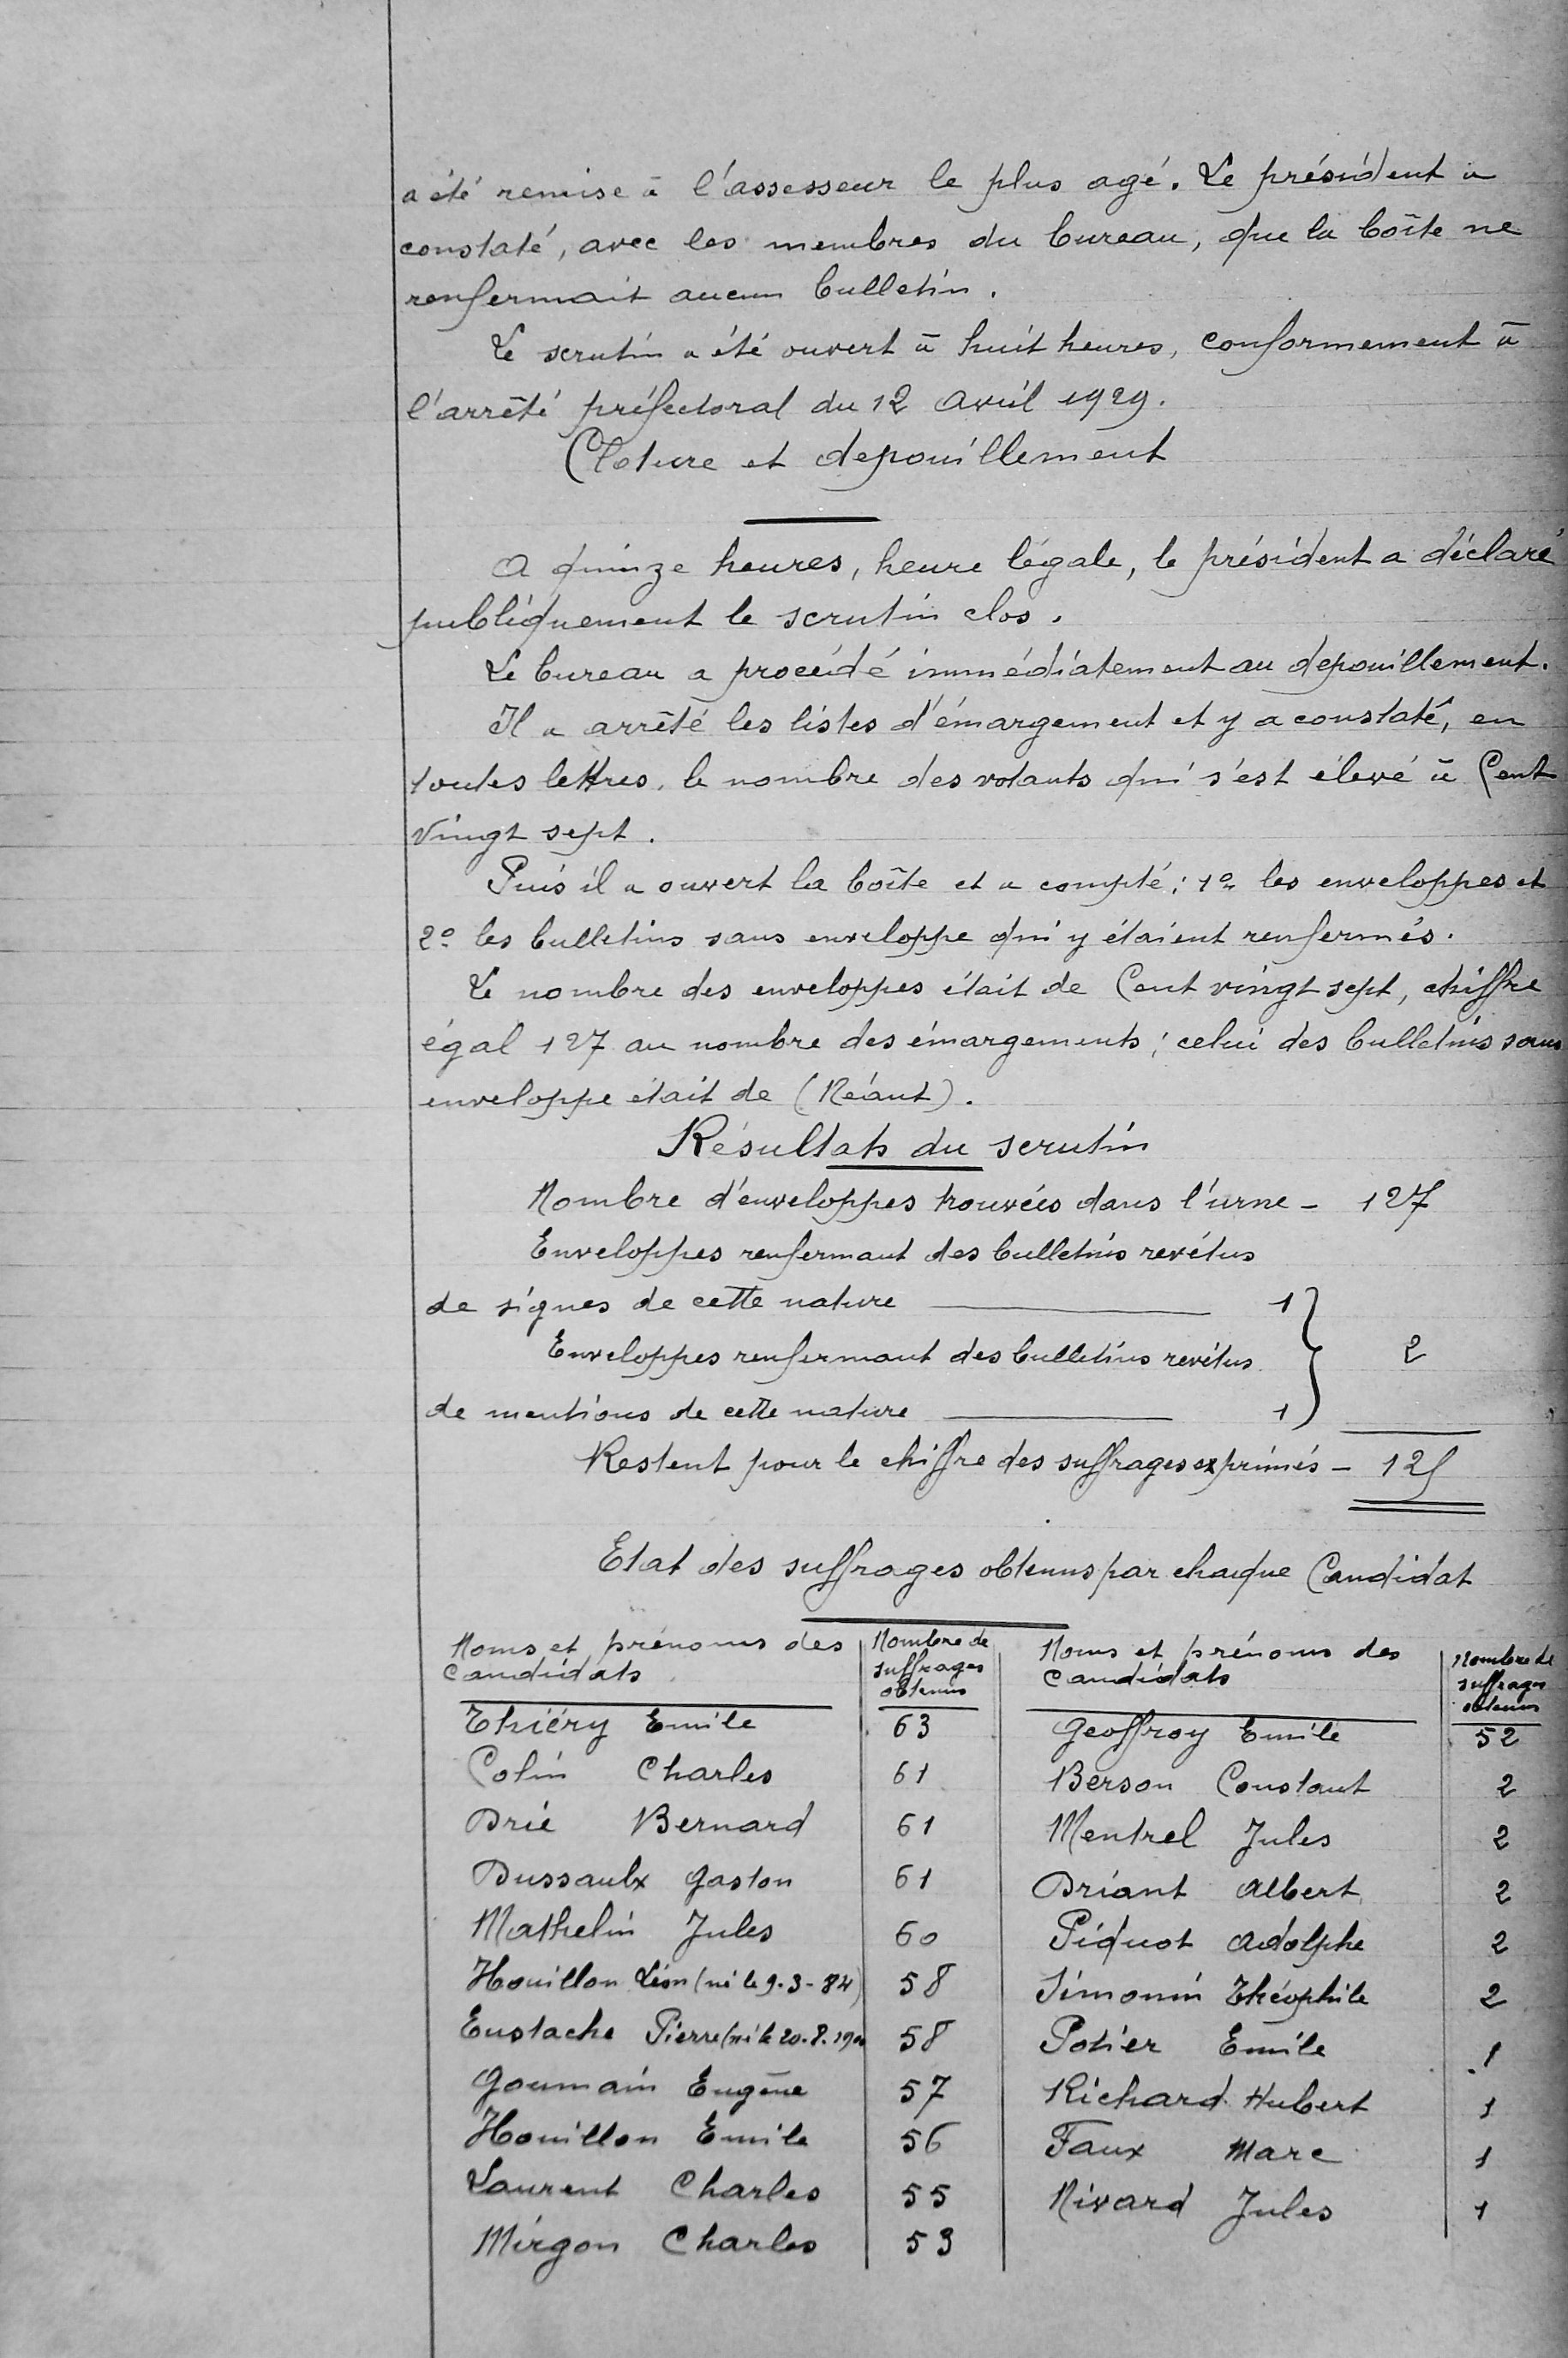 a été remise à l'assesseur le plus agé. Le président a
constaté, avec les membres du bureau, que la boîte ne
renfermait aucun bulletin.
Le scrutin a été ouvert à huit heures, conformement à
l'arrêté préfectoral du 12 avril 1929.
Cloture et depouillement
A quinze heures, heure légale, le président a déclaré
publiquement le scrutin clos.
Le bureau a procédé immédiatement au depouillement.
Il a arrêté les listes d'émargement et y a constaté, en
toutes lettres, le nombre des votants qui s'est élevé à Cent
vingt sept.
Puis il a ouvert la boîte et a compté : 1º les enveloppes et
2º les bulletins sans enveloppe qui y étaient renfermés.
Le nombre des enveloppes était de Cent vingt sept, chiffre
égal 127 au nombre des émargements ; celui des bulletins sans
enveloppe était de (Néant).
Résultats du scrutin
Nombre d'enveloppes trouvées dans l'urne - 127
Enveloppes renfermant des bulletins revétus
de signes de cette nature 1
Enveloppes renfermant des bulletins revétus 2
de mentions de cette nature 1
Restent pour le chiffre des suffrages exprimés - 125
Etat des suffrages obtenus par chaque Candidat
Noms et prénoms des candidats | Nombre de suffrages obtenus | Noms et prénoms des candidats | Nombre de suffrages obtenus
Thiéry Emile 63 Geoffroy Emile 52
Colin Charles 61 Berson Constant 2
Drié Bernard 61 Mentrel Jules 2
Dussaulx Gaston 61 Driant Albert 2
Mathelin Jules 60 Piquot Adolphe 2
Houillon Léon (né le 9-3-84) 58 Simonin Théophile 2
Eustache Pierre (né le 20.8. 58 Potier Emile 1
Goumain Eugène 57 Richard Hubert 1
Houillon Emile 56 Faux Marc 1
Laurent Charles 55 Nivard Jules 1
Mirgon Charles 53